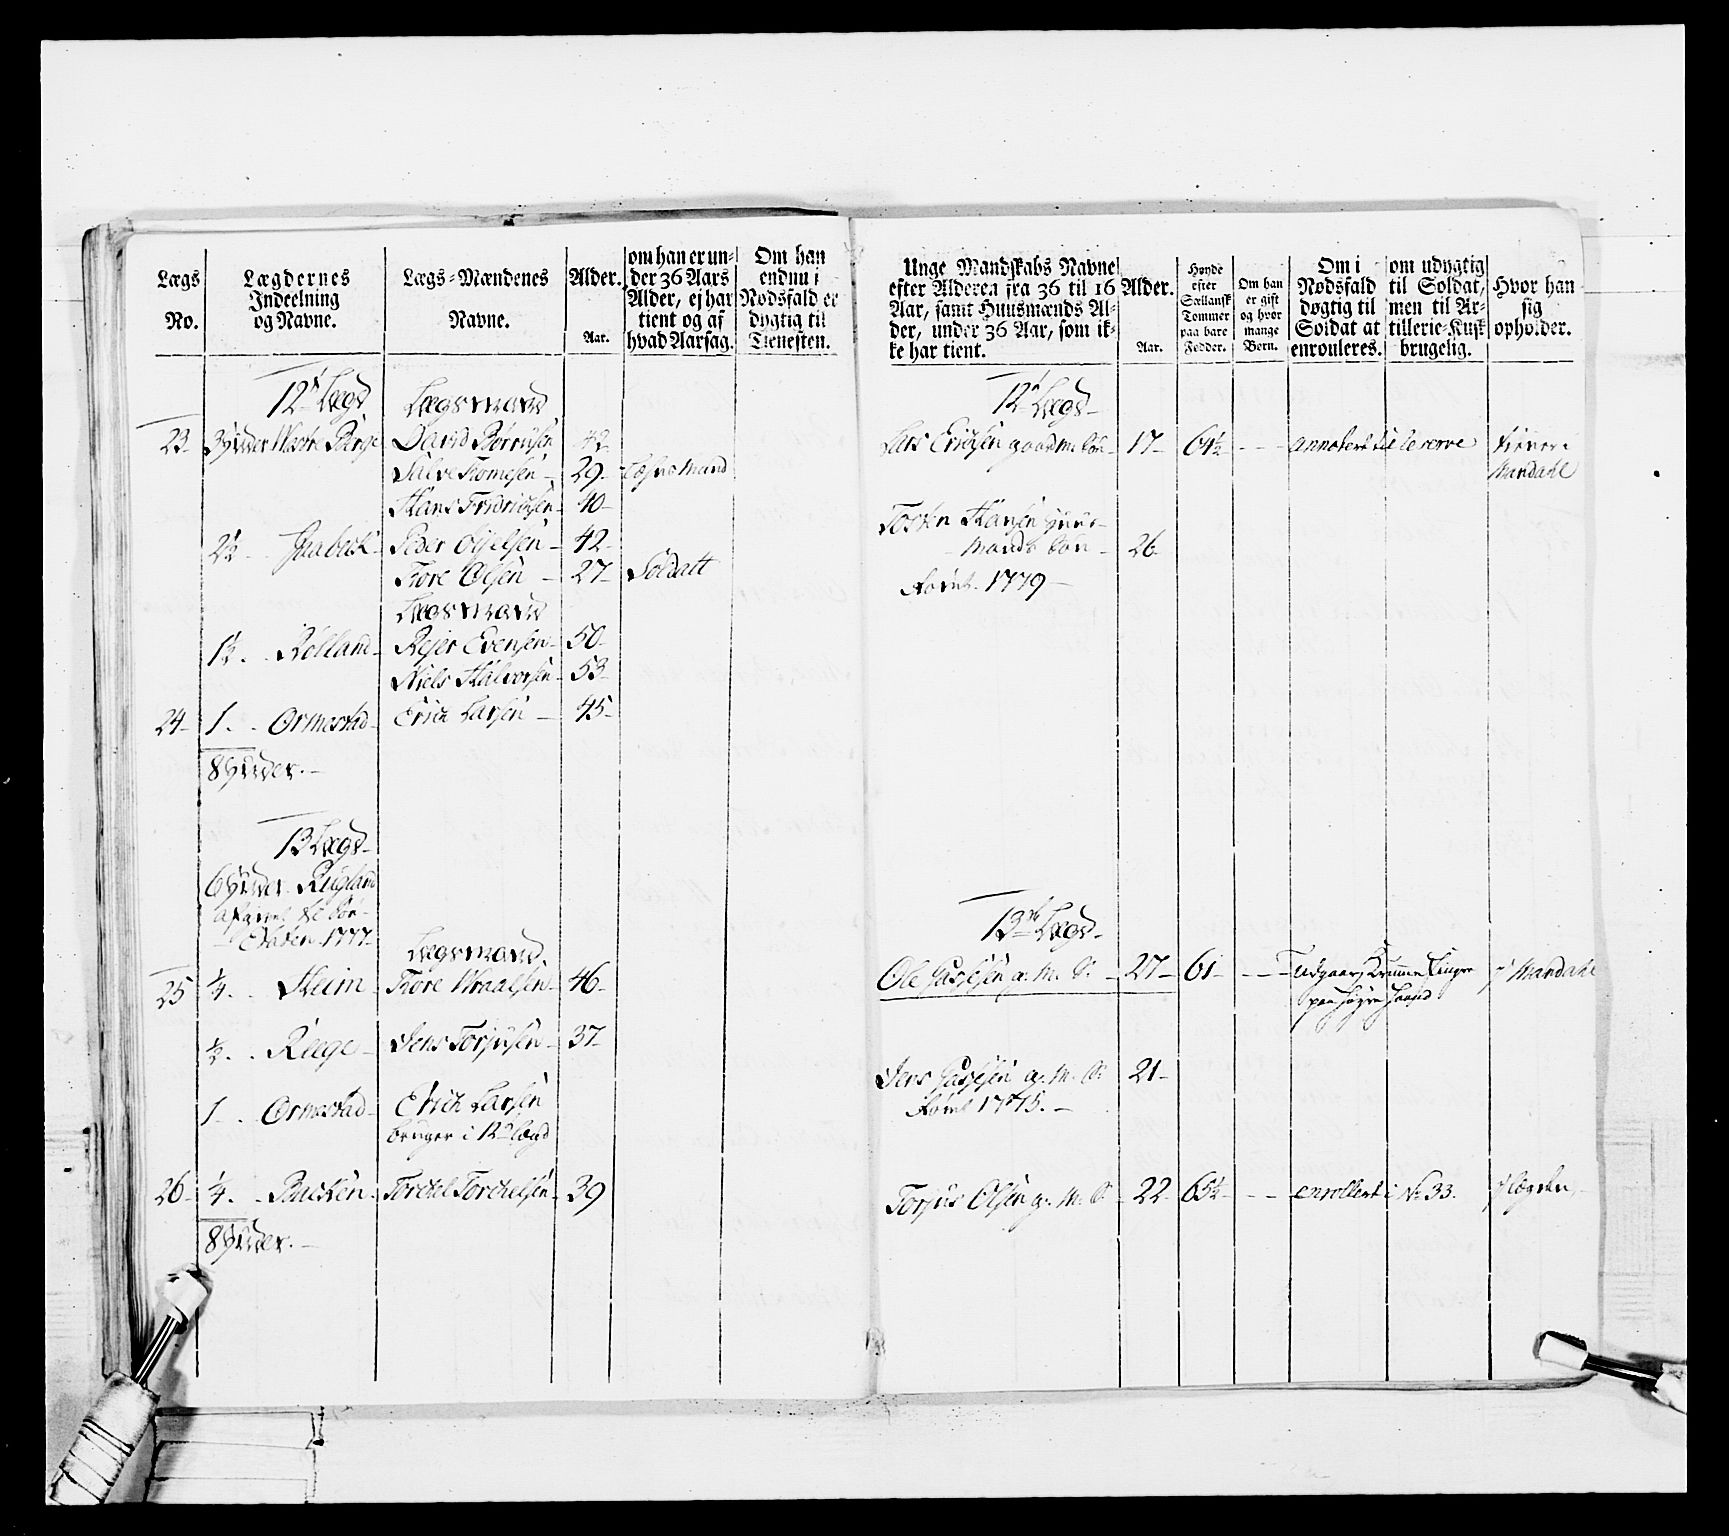 Lægs
No.
Lægdernes
Indeelning
og Navne.
Lægs-Mændenes
Navne.
Alder.
Aar.
om han er un-
der 36 Aars
Alder, ej har
tient og af
hvad Aarsag.
Om han
endnu i
Nødsfald er
dygtig til
Tienesten.
12te Lægd
Lægsmænd
23 3 Huder Westre Berge David Børrusen 42
Salve Tomesen 29
Hans Fridrichsen 40
2½ Peder 42
Tore Olsen 27 Soldatt
Lægsmænd
1½ Rølland Rejer Evensen 50
Niels Halvorsen 53
24 1 Ormestad Erich Larsen 45
8 Huder.
13 Lægd
6 Huder Rugland
1777
Lægsmænd.
25 ¼ Heim Tore 46
½ Reege Jens Torjusen 37
1 Ormestad Erich Larsen
bruger i 12te Lægd
26 ¼ Backen Torckel Torckelsen 39
8 Huder.
Unge Mandskabs Navne
efter Alderen fra 36 til 16
Aar, samt Huusmænds Al-
der, under 36 Aar, som ik-
ke har tient.
Alder.
Aar.
Høyde
efter
Sællansk
Tommer
paa bare
Fødder.
Om han
er gift
og hvor
mange
Børn.
Om i
Nødsfald
dygtig til
Soldat at
enrouleres.
om udygtig
til Soldat,
men til Ar-
tillerie-Kusk
brugelig.
Hvor han
sig
opholder.
12te Lægd
Lars Erichsen gaardm. Søn 17 64½ - - annoteret til Reserve
Mandahl
Tosten Hansen Huus-
Mands Søn 26
Rømt 1779
13de Lægd
Ole g. M. S. 27 61 - - - udgaar, Krumme Fingre i Mandahl
paa høyre Haand
Jens g. M. S. 21
Rømt 1775.
Torjus Olsen g. M. S. 22 65½ - - enrollert i No 33. i Lægden